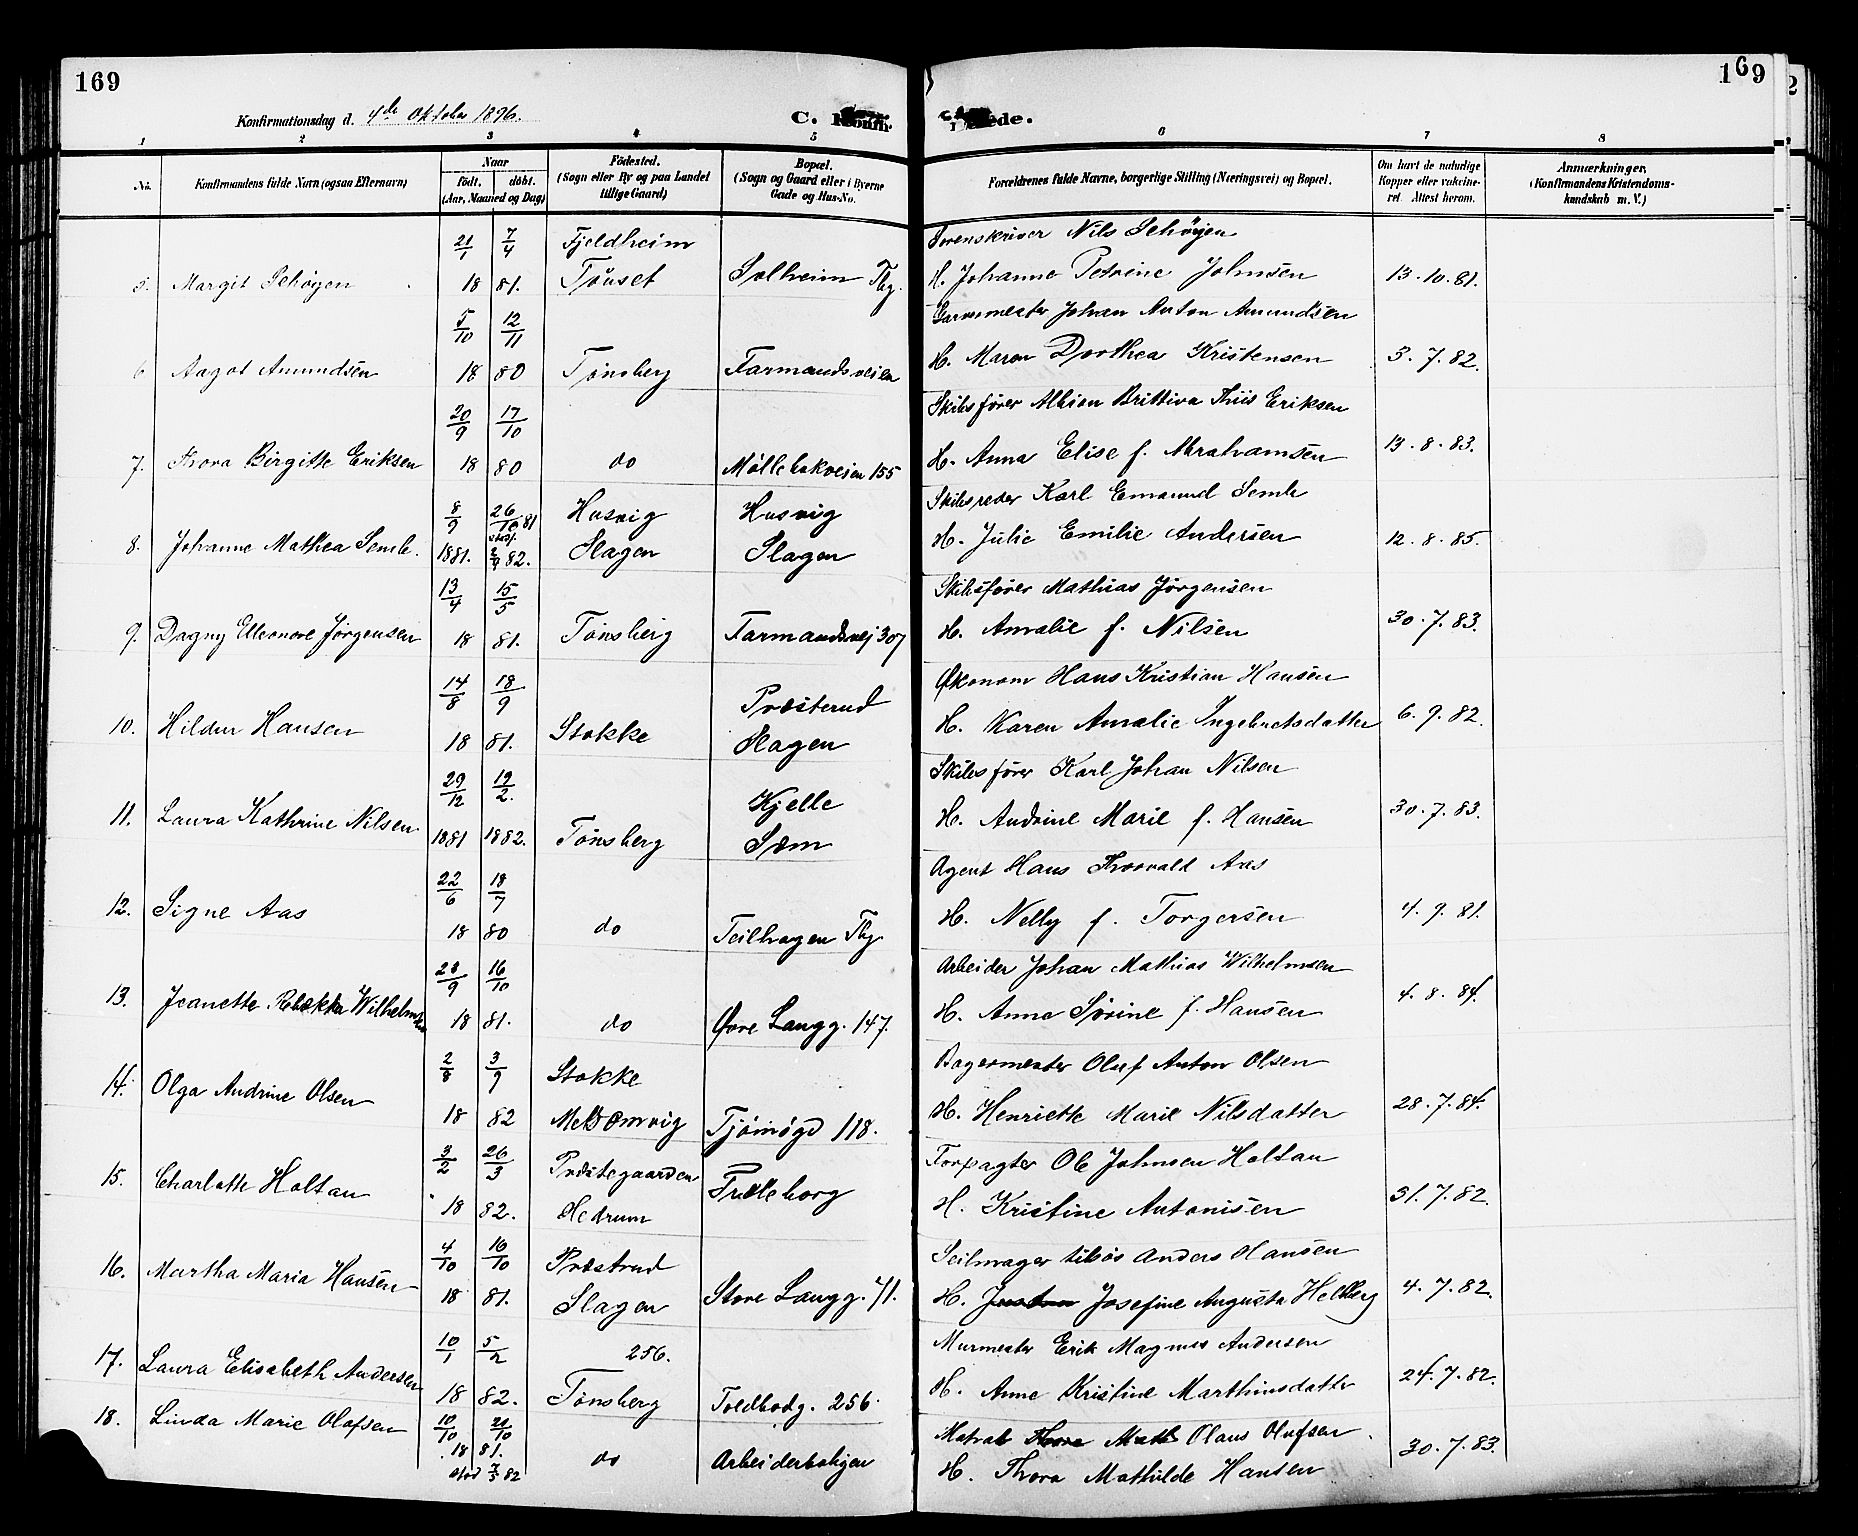 169
169
Konfirmationsdag d. 4de Oktober 1896.
C. Konfir
ede.
1 2 3 4 5 6 7 8
No.
Konfirmandens fulde Navn (ogsaa Efternavn)
Naar
født. døbt.
(Aar, Maaned og Dag)
Födested.
(Sogn eller By og paa Landet
tillige Gaard)
Bopæl.
(Sogn og Gaard eller i Byerne
Gade og Hus-No.
Forældrenes fulde Navne, borgerlige Stilling (Næringsvei) og Bopæl.
Om havt de naturlige
Kopper eller vakcine-
ret. Attest herom.
Anmærkninger.
(Konfirmandens Kristendoms-
kundskab m. V.)
21/1 7/4 Fjeldheim Sorenskriver Nils Schøyen
5. Margit Schøyen 18 81. Tønset Solheim Tbg. H. Johanne Petrine Johnsen 13.10.81.
5/10 12/11 Garvermester Johan Anton Amundsen
6 Aagot Amundsen 18 80 Tønsberg Farmandsveien H. Maren Dorthea Kristensen 3.7.82.
20/9 17/10 Skibsfører Albion Brittiva Thiis Eriksen
7. Thora Birgitte Eriksen 18 80 do Møllebakveien 155 H. Anna Elise f. Abrahamsen 13.8.83.
8/9 26/10 81 Husvig Husvig Skibsreder Karl Emanuel Semb
8. Johanne Mathea Semb. 1881. 82. Slagen Slagen H. Julie Emilie Andersen 12.8.85.
13/4 15/5 Skibsfører Mathias Jørgensen
9. Dagny Elleonore Jørgensen 18 81. Tønsberg Farmandsvej 307 H. Amalie f. Nilsen 30.7.83.
14/8 18/9 Præsterud Økonom Hans Kristian Hansen
10. Hildur Hansen 18 81. Stokke Slagen H. Karen Amalie Ingebretsdatter 6.9.82.
29/12 12/2. Kjelle Skibsfører Karl Johan Nilsen
11. Laura Kathrine Nilsen 1881 1882. Tønsberg Sæm H. Andrine Marie f. Hansen 30.7.83.
22/6 18/7 Agent Hans Thorvald Aas
12. Signe Aas 18 80 do Teilhagen Tbg. H. Nelly f. Torgersen 4.9.81.
28/9 16/10 Arbeider Johan Mathias Wilhelmsen
13. Jeanette Rebekka Wilhelmsen 18 81. do Øvre Langg. 147. H. Anne Sørine f. Hansen 4.8.84.
2/8 3/9 Stokke Bagermester Oluf Anton Olsen
14. Olga Andrine Olsen 18 82 Melsomvig Tjømøgd 118. H. Henriette Marie Nilsdatter 28.7.84.
3/2 26/3 Præstegaarden Forpagter Ole Johnsen Holtan
15. Charlotte Holtan 18 82. Hedrum Træleborg H. Kristine Antonisen 31.7.82.
4/10 16/10 Præstrud Seilmager Anders Hansen
16. Martha Maria Hansen 18 81. Slagen Store Langg. 71. H. Josefine Augusta Helberg 4.7.82.
10/1 5/2 256. Murmester Erik Magnus Andersen
17. Laura Elisabeth Andersen 18 82. Tønsberg Toldbodg. 256. H. Anne Kristine Marthinsdatter 24.7.82.
18. Linda Marie Olafsen 10/10 21/10 Matros Olaus Olufsen
18 81. stad 7/5 82 do Arbeiderboligen H. Thora Mathilde Hansen 30.7.83.